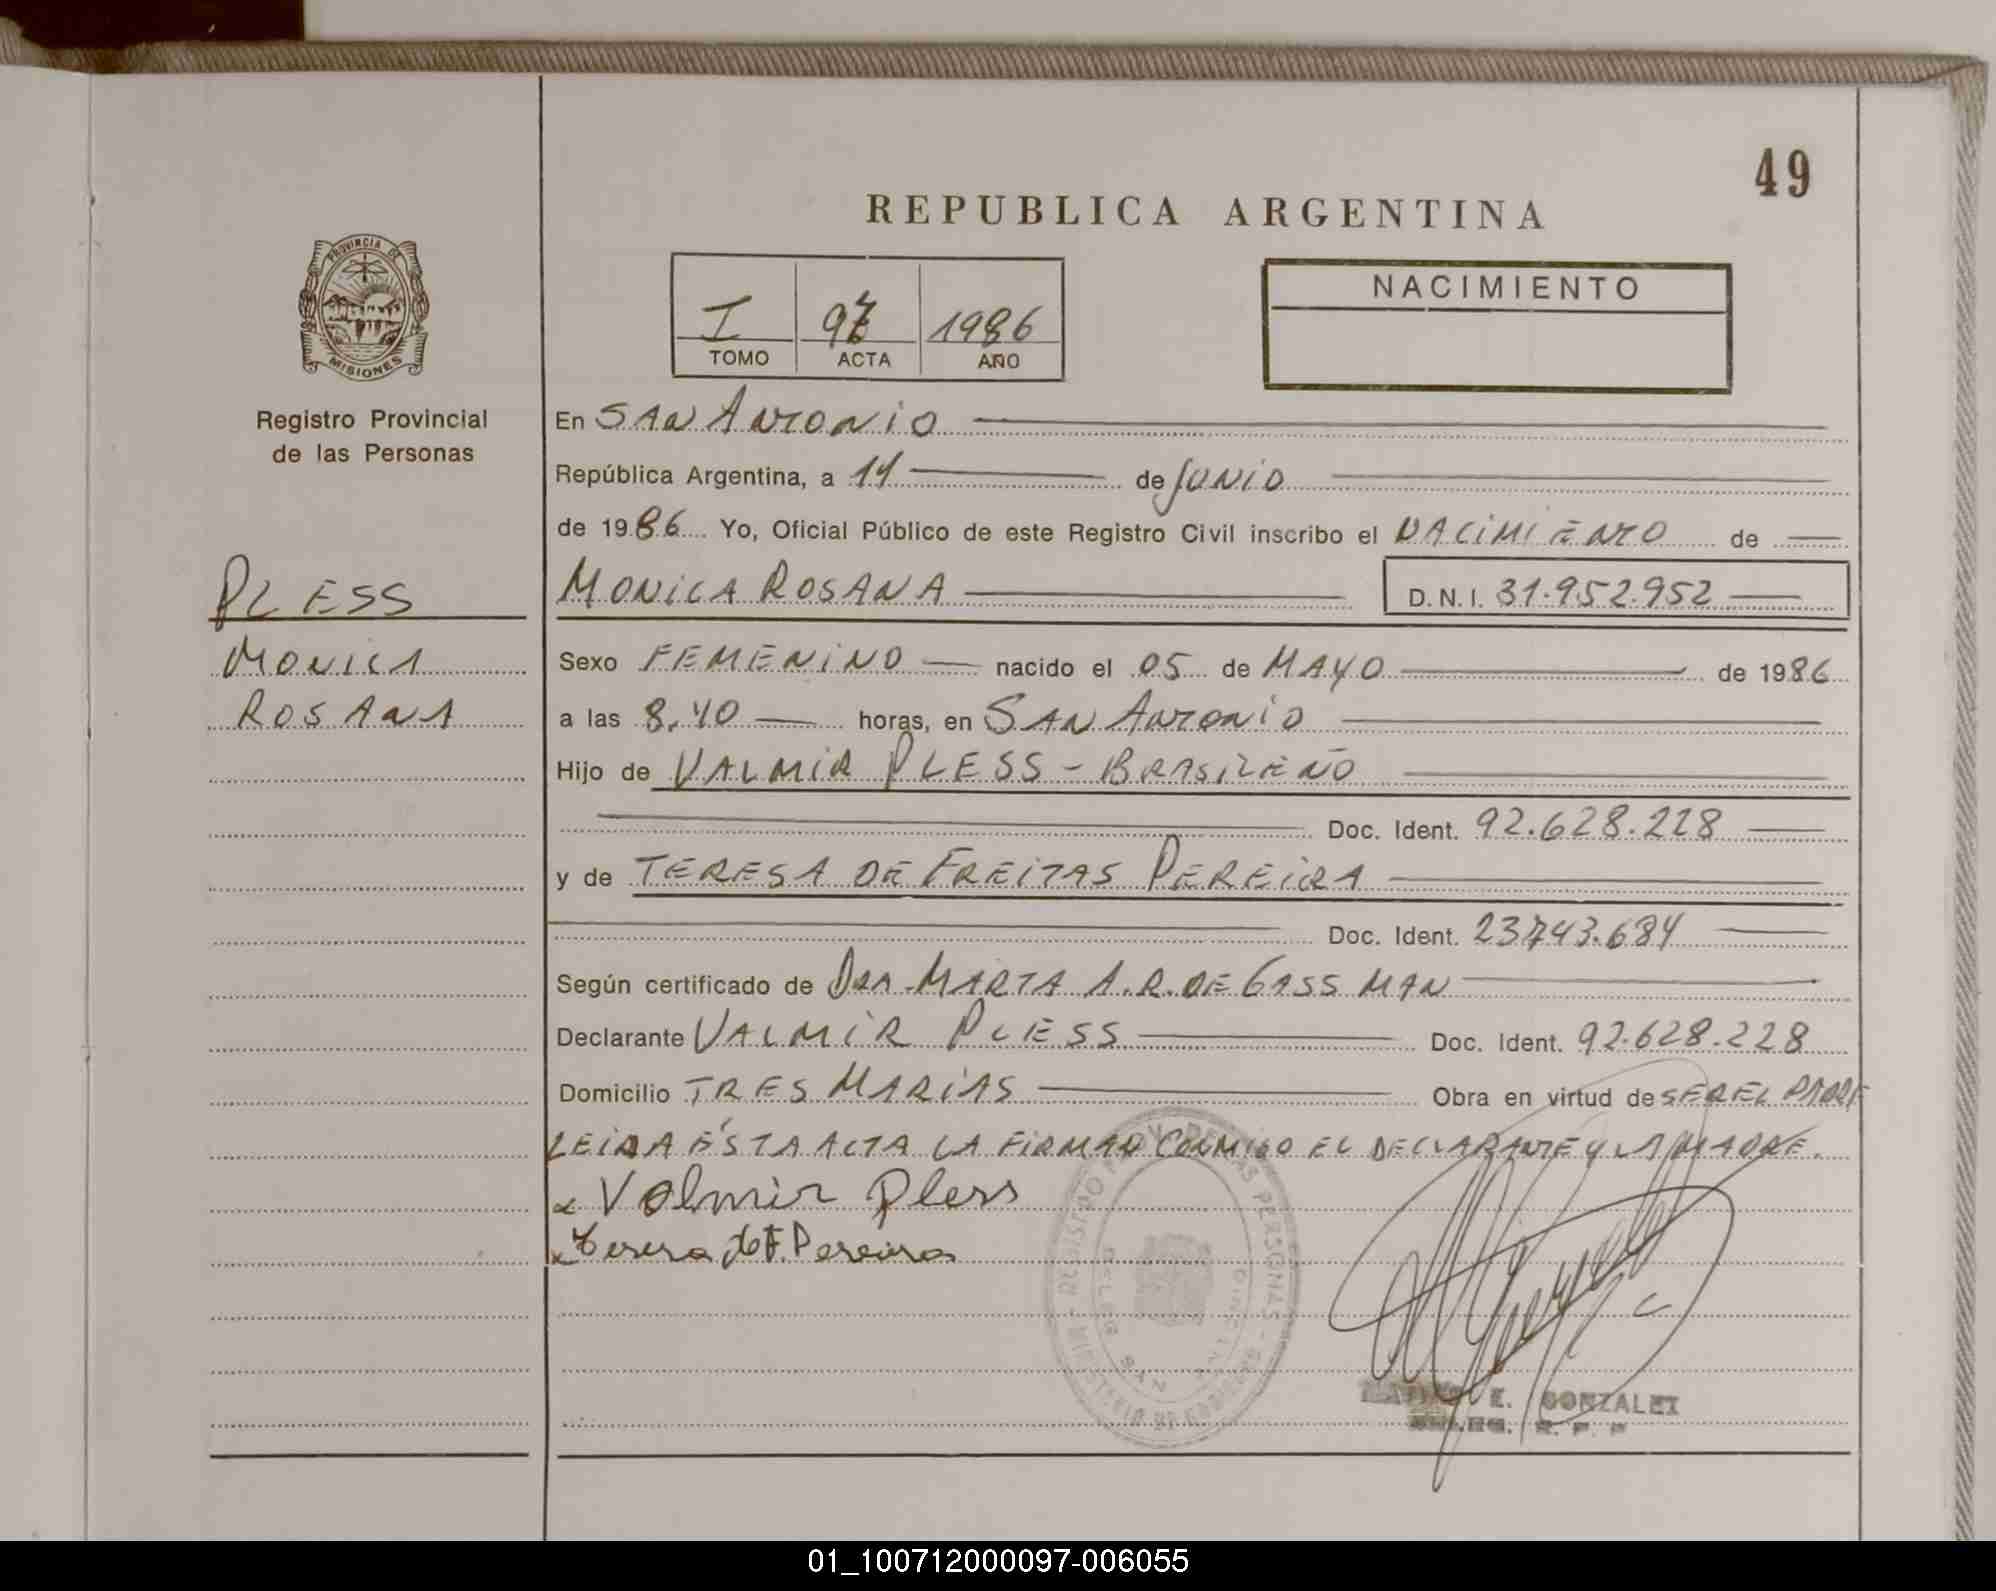 49
REPUBLICA ARGENTINA
PROVINCIA DE
MISIONES
NACIMIENTO
I 97 1986
TOMO ACTA AÑO
Registro Provincial
de las Personas
PLESS
MONICA
ROSANA
En SAN ANTONIO
República Argentina, a 11 de JUNIO
de 1986 Yo, Oficial Público de este Registro Civil inscribo el NACIMIENTO de
MONICA ROSANA D.N.I. 31.952.952
Sexo FEMENINO nacido el 05 de MAYO de 1986
a las 8,40 horas, en SAN ANTONIO
Hijo de VALMIR PLESS - BRASILEÑO
Doc. Ident. 92.628.228
y de TERESA DE FREITAS PEREIRA
Doc. Ident. 23743.684
Según certificado de DRA. MARTA A.R. DE GASSMAN
Declarante VALMIR PLESS Doc. Ident. 92.628.228
Domicilio TRES MARÍAS Obra en virtud de SER EL PADRE
LEIDA ÉSTA ACTA LA FIRMAN CONMIGO EL DECLARANTE Y LA MADRE.
x Valmir Pless
x Teresa de F. Pereira
E. GONZALEZ
01_100712000097-006055